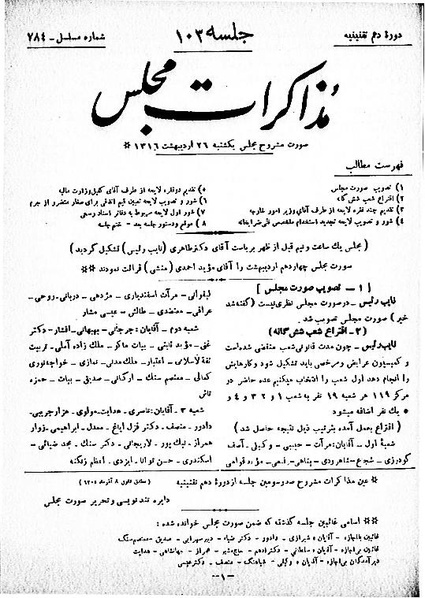 دورهٔ دهم تقنینیه
جلسه ۱۰۳
شماره مسلسل - ۷۸۴
مذاکرات مجلس
صورت مشروح مجلس یکشنبه ۲۶ اردیبهشت ۱۳۱۶
فهرست مطالب
۱) تصویب صورت مجلس
۲) اقتراع شعب شش گانه
۳) تقدیم چند فقره لایحه از طرف آقای وزیر امور خارجه
۴) شور و تصویب لایحه تجدید استخدام متخصص فنی ضرابخانه
۵) تقدیم دو فقره لایحه از طرف آقای کفیل وزارت مالیه
۶) شور و تصویب لایحه تعیین قیم اتفاقی برای صغار متضرر از جرم
۷) شور اول لایحه مربوط به دفاتر اسناد رسمی
۸) موقع و دستور جلسه بعد - ختم جلسه
(مجلس یک ساعت و نیم قبل از ظهر بریاست آقای دکتر طاهری (نایب رئیس) تشکیل گردید)
صورت مجلس چهاردهم اردیبهشت را آقای مؤید احمدی (منشی) قرائت نمودند
[۱ - تصویب صورت مجلس]
نایب رئیس - در صورت مجلس نظری نیست (گفته شد
خیر) صورت مجلس تصویب شد.
(۲ - اقتراع شعب شش گانه)
نایب رئیس - چون مدت قانونی شعب منقضی شده است
و کمیسیون عرایض و مرخصی باید تشکیل شود و کارهایش
را انجام دهد اول شعب را انتخاب میکنیم عده حاضر در
مرکز ۱۱۹ هر شعبه ۱۹ نفر به شعب ۱ و ۲ و ۳ و ۴ و
۵ یک نفر اضافه میشود
(اقتراع بعمل آمده بترتیب ذیل نتیجه حاصل شد)
شعبه اول - آقایان: مرآت - حبیبی - وکیلی - آصف
گودرزی - شجاع - شاهرودی - پناهی - رهبری - مؤید قوامی
لیقوانی - مرآت اسفندیاری - مژدهی - دربانی - روحی -
عراقی - معتضدی - طالش - عیسی مشار
شعبه دوم - آقایان: جرجانی - بهبهانی - افشار - دکتر
غنی - مؤید ثابتی - بیات ماکو - ملک زاده آملی - تربیت
ثقة الاسلامی - اعتبار - ملک مدنی - نمازی - خواجه نوری
کمالی - معتصم سنگ - ارکانی - صدیق - بیات - حمزه
تاش
شعبه ۳ - آقایان: ناصری - هدایت - مولوی - هزار جریبی -
دادور - منصف - دکتر قزل ایاغ - معدل - ابراهیمی - زوار
همراز - نیک پور - لاریجانی - دکتر سنگ - مجد ضیائی -
اسکندری - حسن توانا - ایزدی - اعظم زنگنه
عین مذاکرات مشروح صد و سومین جلسه از دوره دهم تقنینیه
دایره تند نویسی و تحریر صورت مجلس
اسامی غائبین جلسه گذشته که ضمن صورت مجلس خوانده شده:
- ۱ -